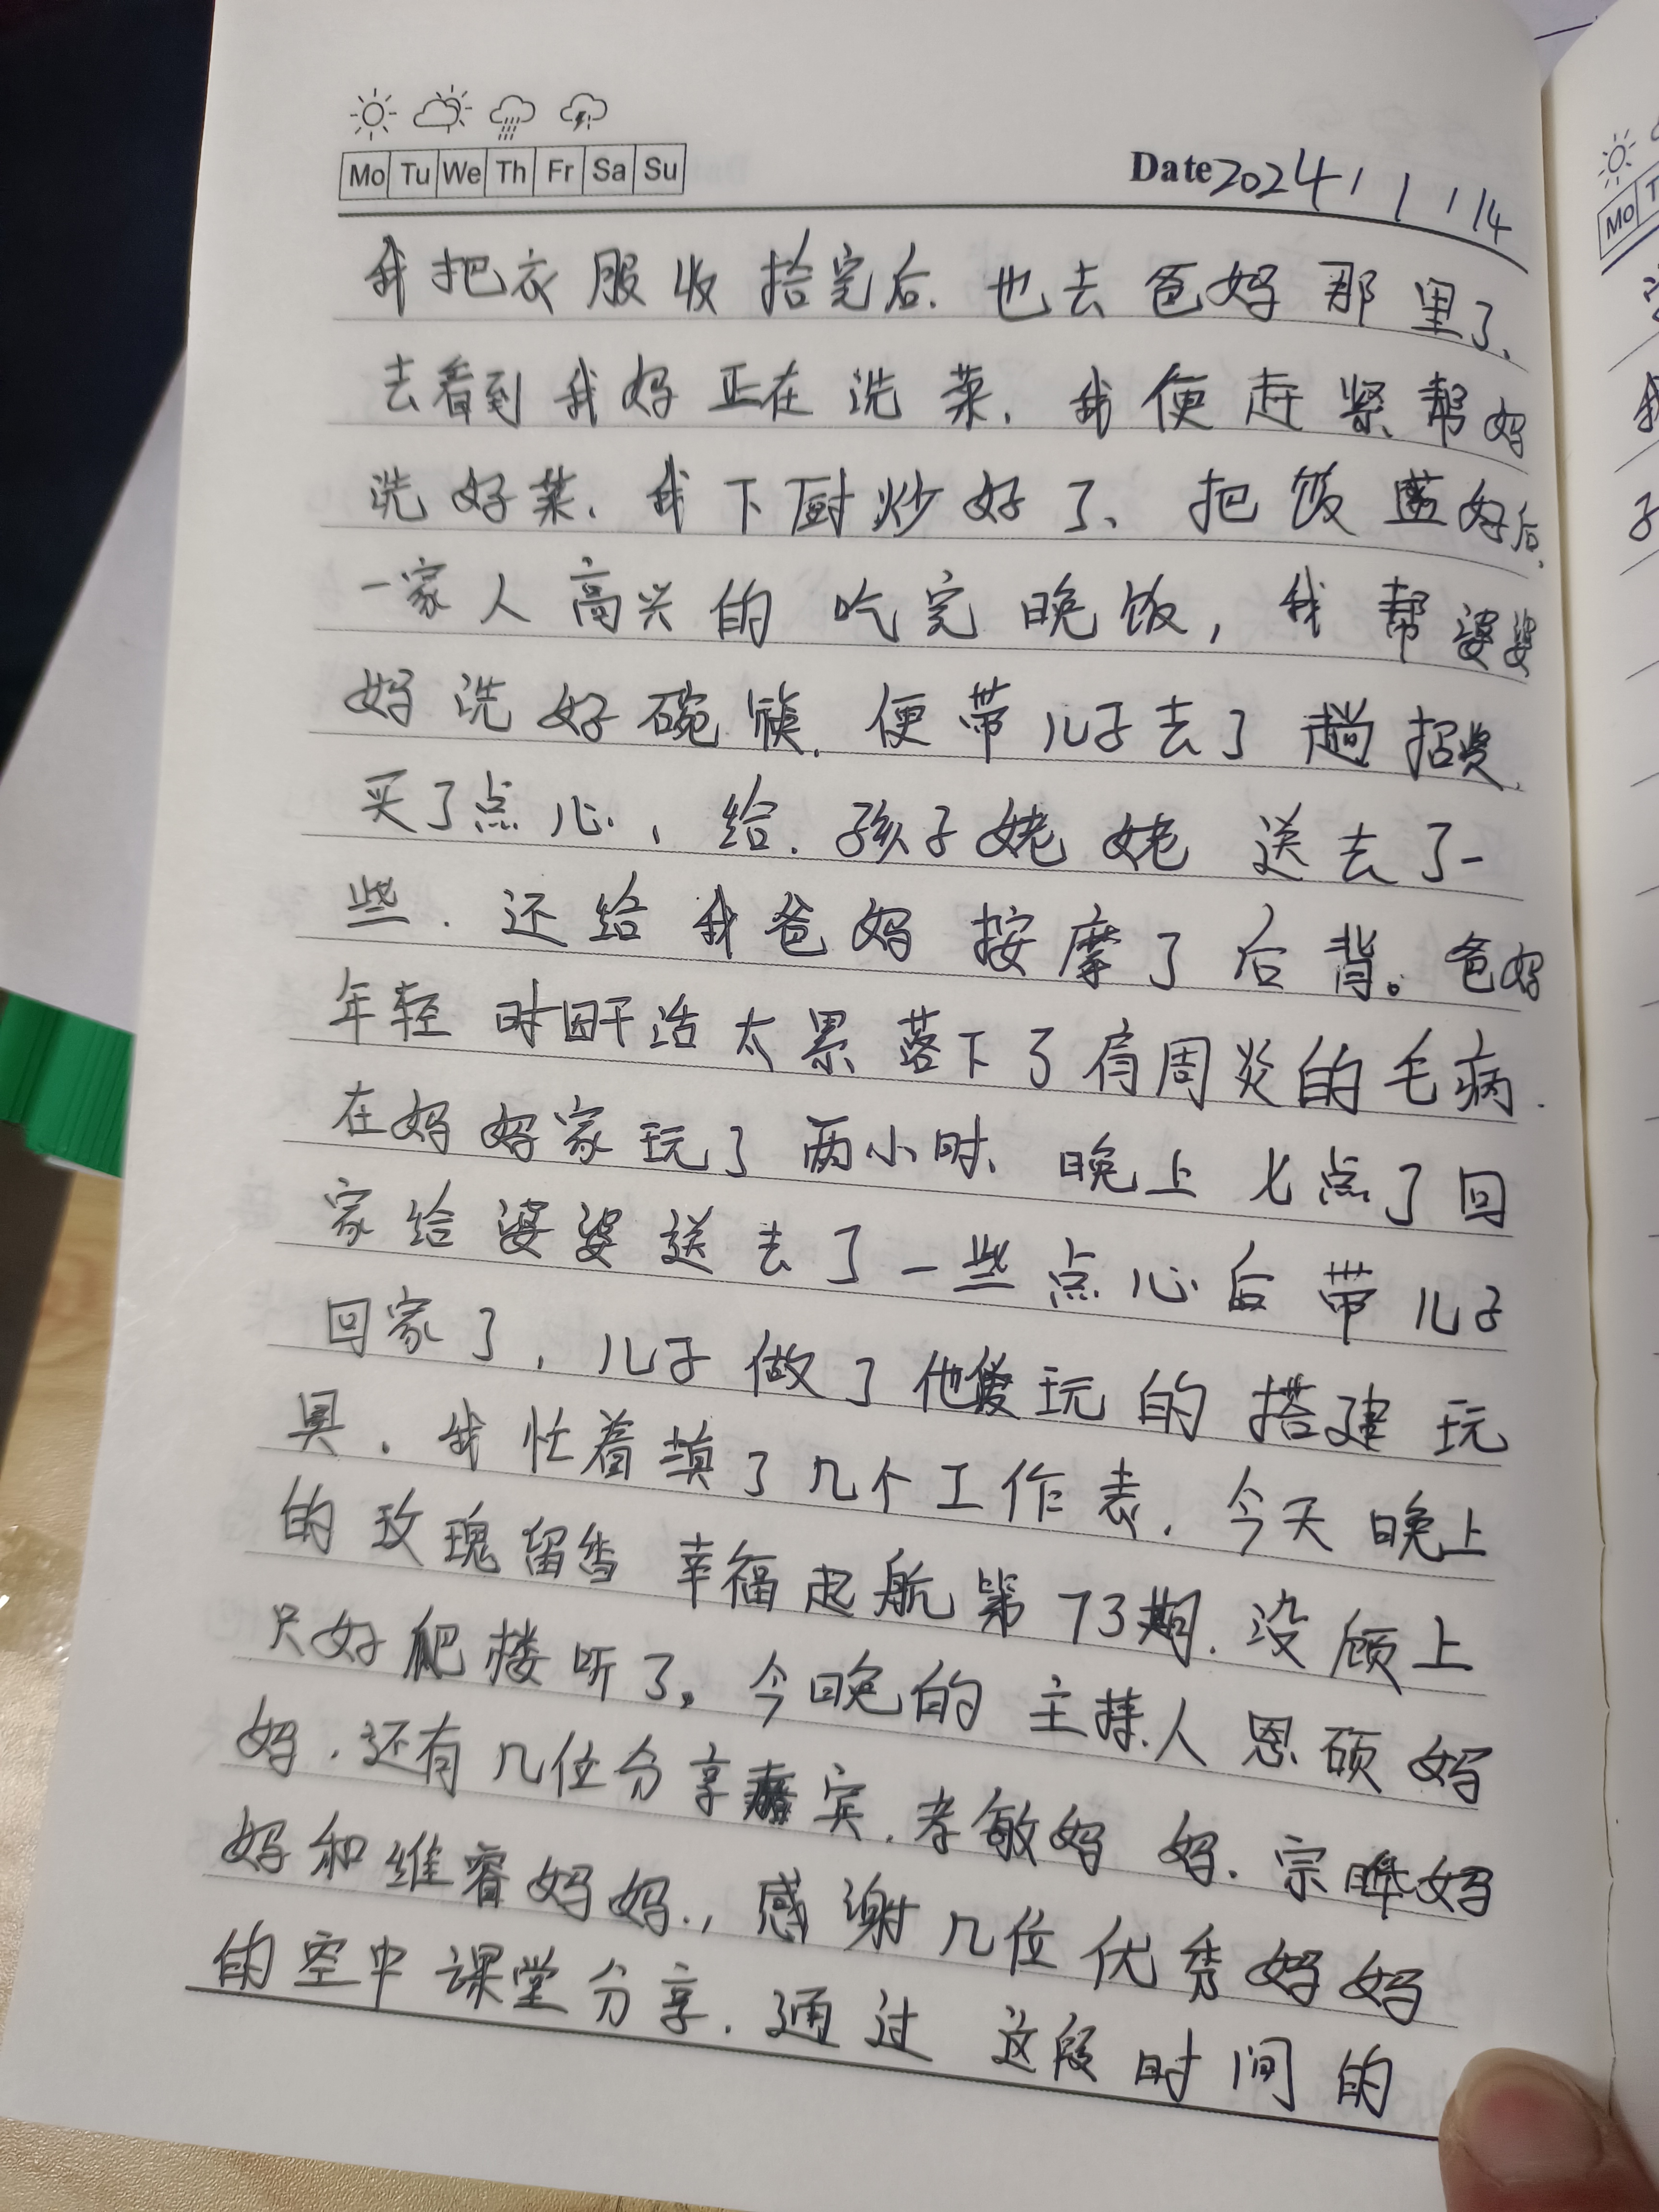 Mo Tu We Th Fr Sa Su
Date 2024 / 1 / 14
我把衣服收拾完后.也去爸妈那里了、
去看到我妈正在洗菜.我便赶紧帮妈
洗好菜.我下厨炒好了、把饭盛好后.
一家人高兴的吃完晚饭,我帮婆婆
妈洗好碗筷.便带儿子去了趟招贤.
买了点心、给.孩子姥姥送去了一
些.还给我爸妈按摩了后背。爸妈
年轻时干活太累落下了肩周炎的毛病.
在妈妈家玩了两小时、晚上七点了回
家给婆婆送去了一些点心后带儿子
回家了,儿子做了他爱玩的搭建玩
具.我忙着填了几个工作表.今天晚上
的玫瑰留香幸福起航第73期.没顾上
只好爬楼听了。今晚的主持人恩硕妈
妈.还有几位分享嘉宾.孝敏妈妈.宗晔妈
妈和维睿妈妈.,感谢几位优秀妈妈
的空中课堂分享.通过这段时间的
Mo
我
子